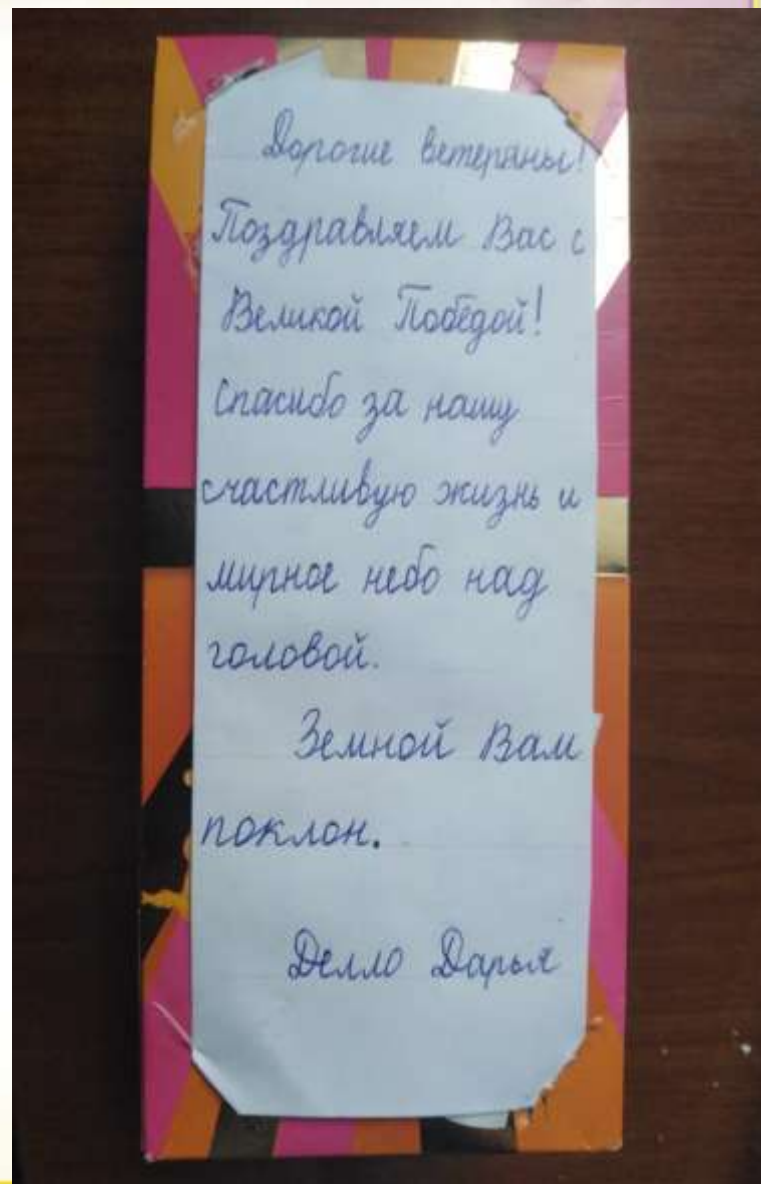 Дорогие ветераны!
Поздравляем Вас с
Великой Победой!
Спасибо за нашу
счастливую жизнь и
мирное небо над
головой.
Земной Вам
поклон.
Делло Дарья